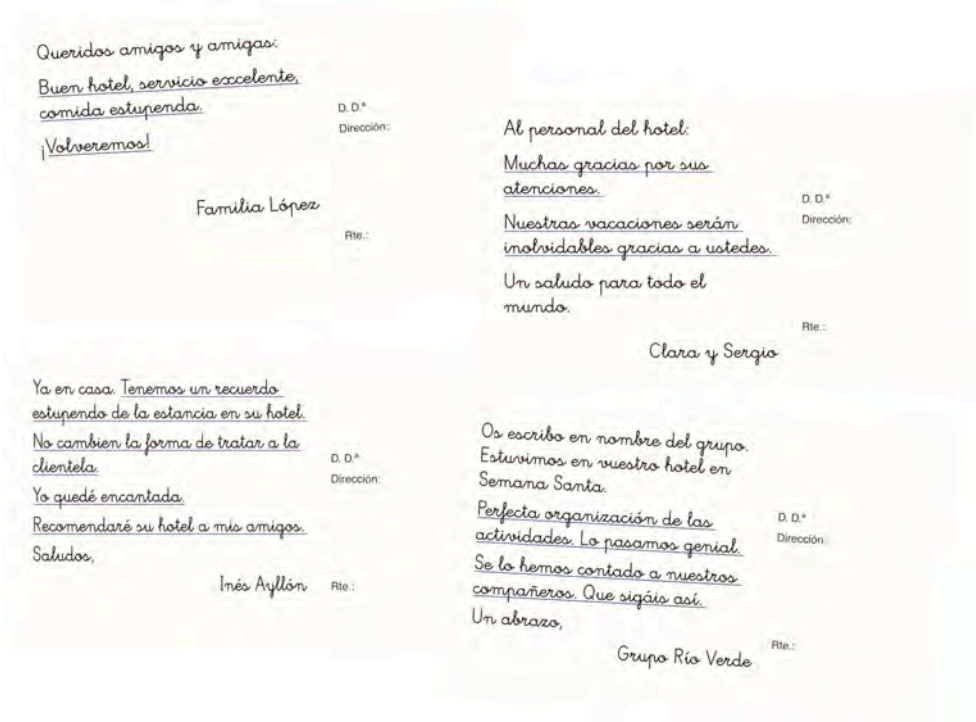 Queridos amigos y amigas:
Buen hotel, servicio excelente,
comida estupenda.
¡Volveremos!
Familia López
D. D.ª
Dirección:
Rte.:
Al personal del hotel:
Muchas gracias por sus
atenciones.
Nuestras vacaciones serán
inolvidables gracias a ustedes.
Un saludo para todo el
mundo.
Clara y Sergio
D. D.ª
Dirección:
Rte.:
Ya en casa. Tenemos un recuerdo
estupendo de la estancia en su hotel.
No cambien la forma de tratar a la
clientela.
Yo quedé encantada.
Recomendaré su hotel a mis amigos.
Saludos,
Inés Ayllón
D. D.ª
Dirección:
Rte.:
Os escribo en nombre del grupo.
Estuvimos en vuestro hotel en
Semana Santa.
Perfecta organización de las
actividades. Lo pasamos genial.
Se lo hemos contado a nuestros
compañeros. Que sigáis así.
Un abrazo,
Grupo Río Verde
D. D.ª
Dirección:
Rte.: